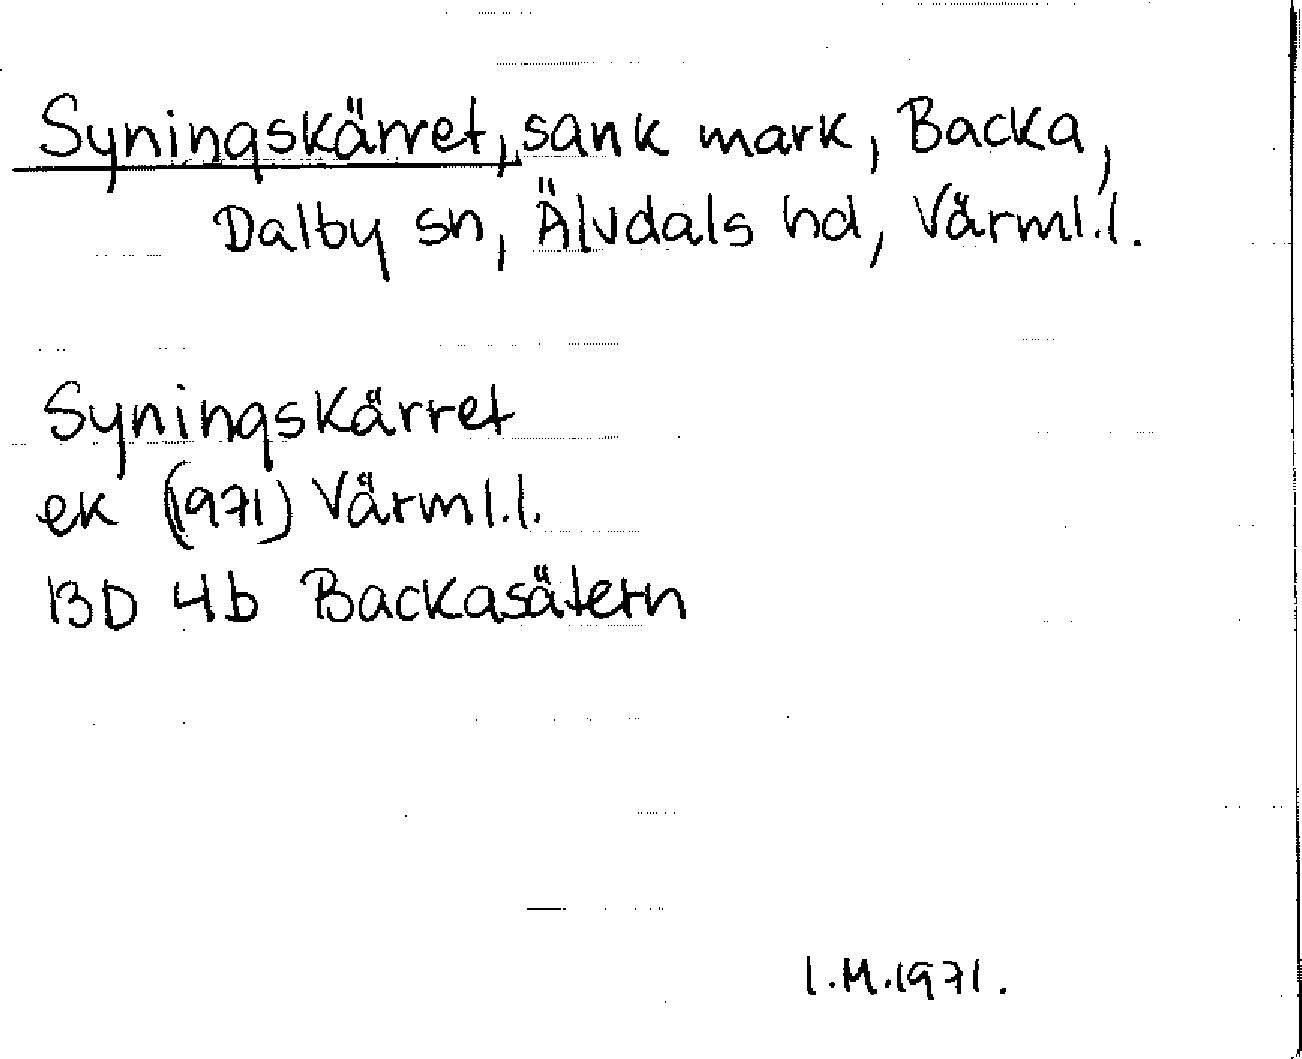 Syningskärret, sank mark, Backa,
Dalby sn, Älvdals hd, Värml.l.
Syningskärret
ek (1971) Värml.l.
13D 4b Backasätern
I.M.1971.